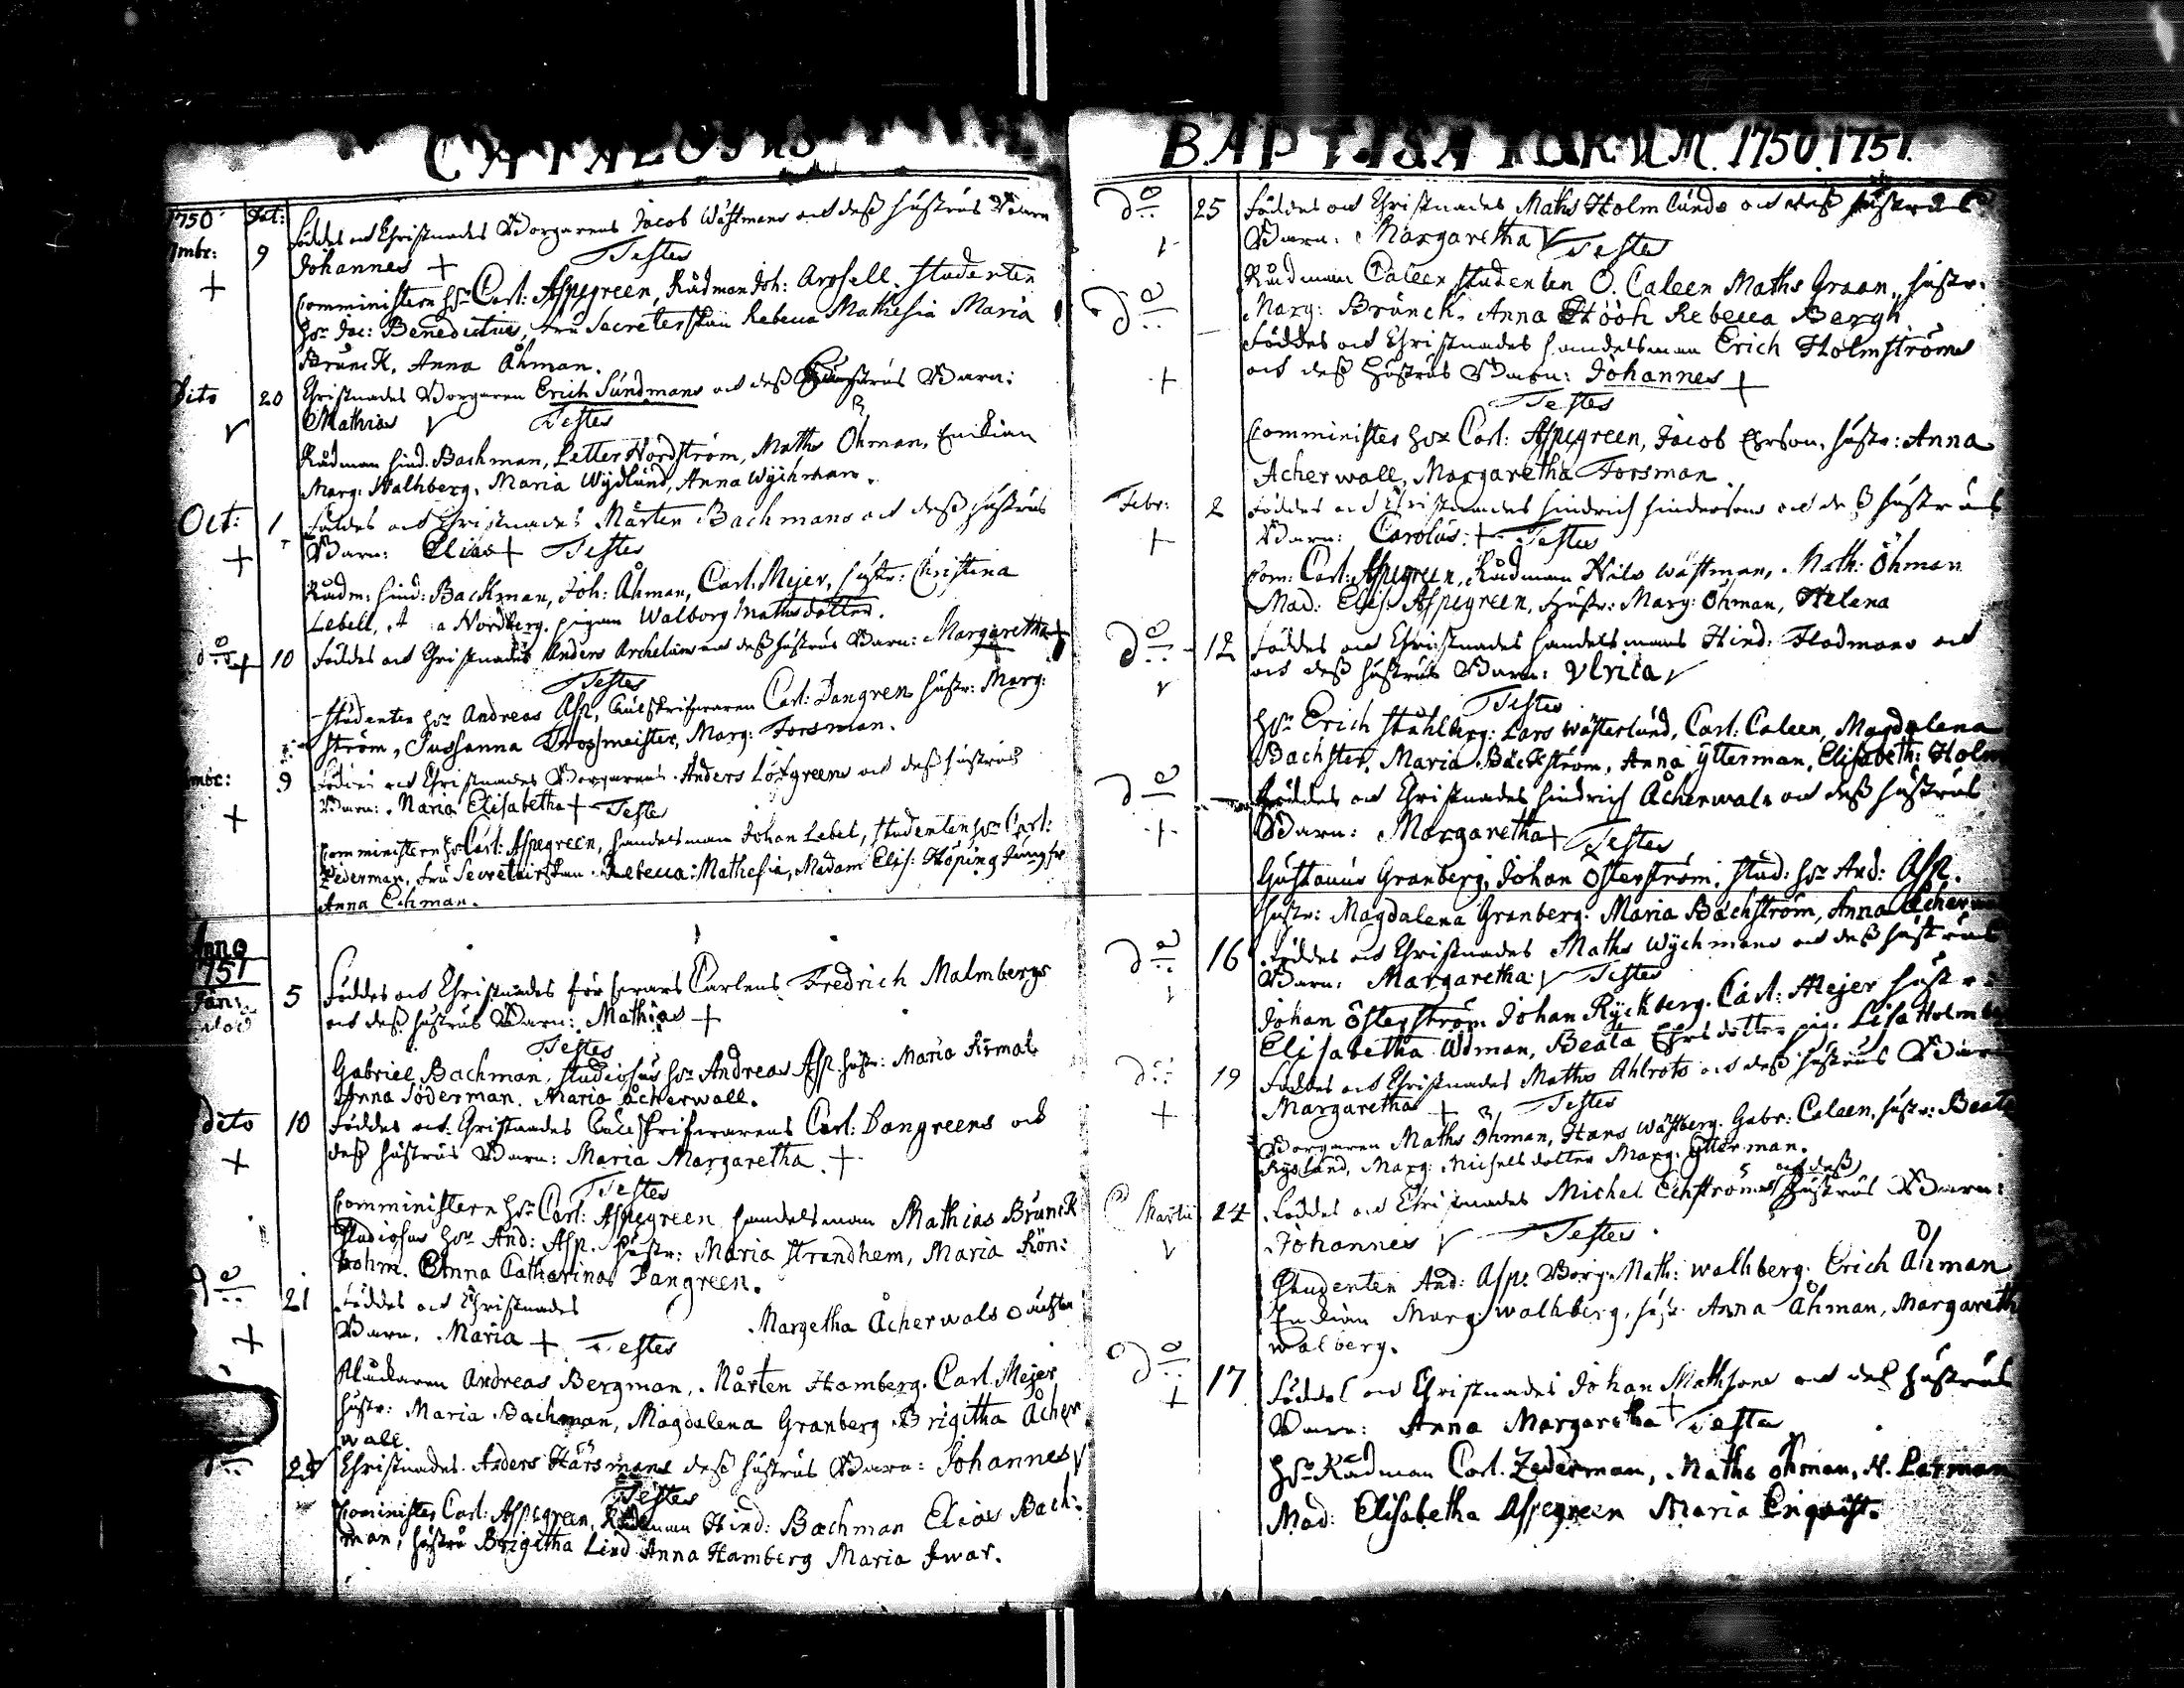 CATALOGUS
1750 Dat:
9 Föddes och Christnades Borgarens Jacob Wästmans och dess hustrus Barn
Johannes + Testes
Comministern Hr Carl: Aspegreen, Rådman Joh: Arosell, Studenten
Hr Jac: Benedictius, fru Secreterskan Rebecca Mathesia Maria
Brunck, Anna Åhman.
Dito 20 Christnades Borgaren Erich Sundmans och dess Hustrus Barn:
Mathias V Testes
Rådman Hind. Bachman, Petter Nordström, Maths Öhman, Enckian
Marg: Walhberg, Maria Wydlund, Anna Wychman.
Oct: 1 Föddes och Christnades Mårten Bachmans och dess hustrus
+ Barn: Elias + Testes
Rådm: Hind: Backman, Joh: Åhman, Carl: Mejer, hustr: Christina
Lebell, Nordberg, pigan Walborg Mathsdotter.
do + 10 Föddes och Christnades Anders Archelius och dess hustrus Barn: Margaretha +
Testes
Studenten Hr Andreas Asp, Cancskrifwaren Carl: Dangren hustr: Marg:
ström, Sussanna Trossmeister, Marg: Forsman.
mbr: 9 Föddes och Christnades Borgarens Anders Löfgreens och dess hustrus
+ Barn: Maria Elisabetha + Testes
Comministern Hr Carl: Aspegreen, Handelsman Johan Lebel, Studenten Hr Carl:
Zederman, fru Secretairskan Rebecca: Mathesia, Madam Elis: Höping Jungfr
Anna Echman.
Anno
1751
Jan: 5 Föddes och Christnades förswars Carlens Fredrich Malmbergs
och dess hustrus Barn: Mathias +
Testes
Gabriel Bachman, Studiosus Hr Andreas Asp. hustr: Maria
Anna Söderman. Maria Åcherwall.
dito 10 Föddes och Christnades Cancskrifwarens Carl: Dangreens och
+ dess hustrus Barn: Maria Margaretha. +
Testes
Comministern Hr Carl: Aspegreen handelsman Mathias Brunck
Studiosus Hr And: Asp. hustr: Maria Strandhem, Maria Rön:
bohm. Anna Catharina Dangreen.
do 21 Föddes och Christnades Margetha Åcherwals oächta
+ Barn, Maria + Testes
Andreas Bergman, Mårten Hamberg. Carl. Mejer
hustr: Maria Bachman, Magdalena Granberg Brigitha Åcher
wall.
do Christnades Anders Hårsmans dess hustrus Barn: Johannes V
Testes
Cominister Carl: Aspegreen, Rådman Hind: Bachman Elias Bach:
man, hustru Brigitha Lind Anna Hamberg Maria Iwar.
BAPTISATORUM. 1750. 1751.
do 25 Föddes och Christnades Maths Holmlunds och dess hustrus
V Barn: Margaretha V Testes
Rådman Caleen Studenten O. Caleen Maths Graan, hustr:
Marg: Brunck, Anna Hööh Rebecca Bergh
do Föddes och Christnades handelsman Erich Holmströms
+ och dess Hustrus Barn: Johannes +
Testes
Comminister Hr Carl: Aspegreen, Jacob Ehrson, hustr: Anna
Acherwall, Margaretha Forsman.
Febr: 2 Föddes och Christnades Hindrich Hindersons och dess hustrus
+ Barn: Carolus: + Testes
Com: Carl: Aspegreen, Rådman Nils Wästman, Math: Öhman
Mad: Elis: Aspegreen, hustr: Marg: Öhman, Helena
do 12 Föddes och Christnades handelsmans Hind: Flodmans och
V och dess hustrus Barn: Ulrica V
Testes
Hr Erich Stahlberg: Lars Wästerlund, Carl: Caleen, Magdalena
Bachster, Maria Bäckström, Anna Ytterman, Elisabeth: Holm
do Föddes och Christnades Hindrich Åcherwals och dess hustrus
+ Barn: Margaretha + Testes
Gustavus Granberg, Johan Österström, Stud: Hr And: Asp.
hustr: Magdalena Granberg: Maria Bachström, Anna Acherw
do 16 Föddes och Christnades Maths Wychmans och dess hustrus
V Barn: Margaretha: V Testes
Johan Österström Johan Ryckberg. Carl: Mejer hustr
Elisabetha Udman, Beata Ehrsdotter pig. Lisa Holm
do 19 Föddes och Christnades Maths Ahlrots och dess hustrus Barn
+ Margaretha + Testes
Borgaren Maths Öhman, Hans Wästberg. Gabr: Caleen, hustr: Beata
Ryslund, Marg: Michelsdotter Marg: Ytterman.
Martii 24 Föddes och Christnades Michel Echströms och dess Hustrus Barn:
V Johannes V Testes
Studenten And: Asp. Borg. Math: Walhberg. Erich Åhman
Enckian Marg: Walhberg, hustr. Anna Åhman, Margareth
Walberg.
do 17 Föddes och Christnades Johan Mathsons och dess hustrus
+ Barn: Anna Margaretha + Testes
Hr Rådman Carl. Zederman, Maths Öhman, N. Latman
Mad: Elisabetha Aspegreen Maria Enqvist.